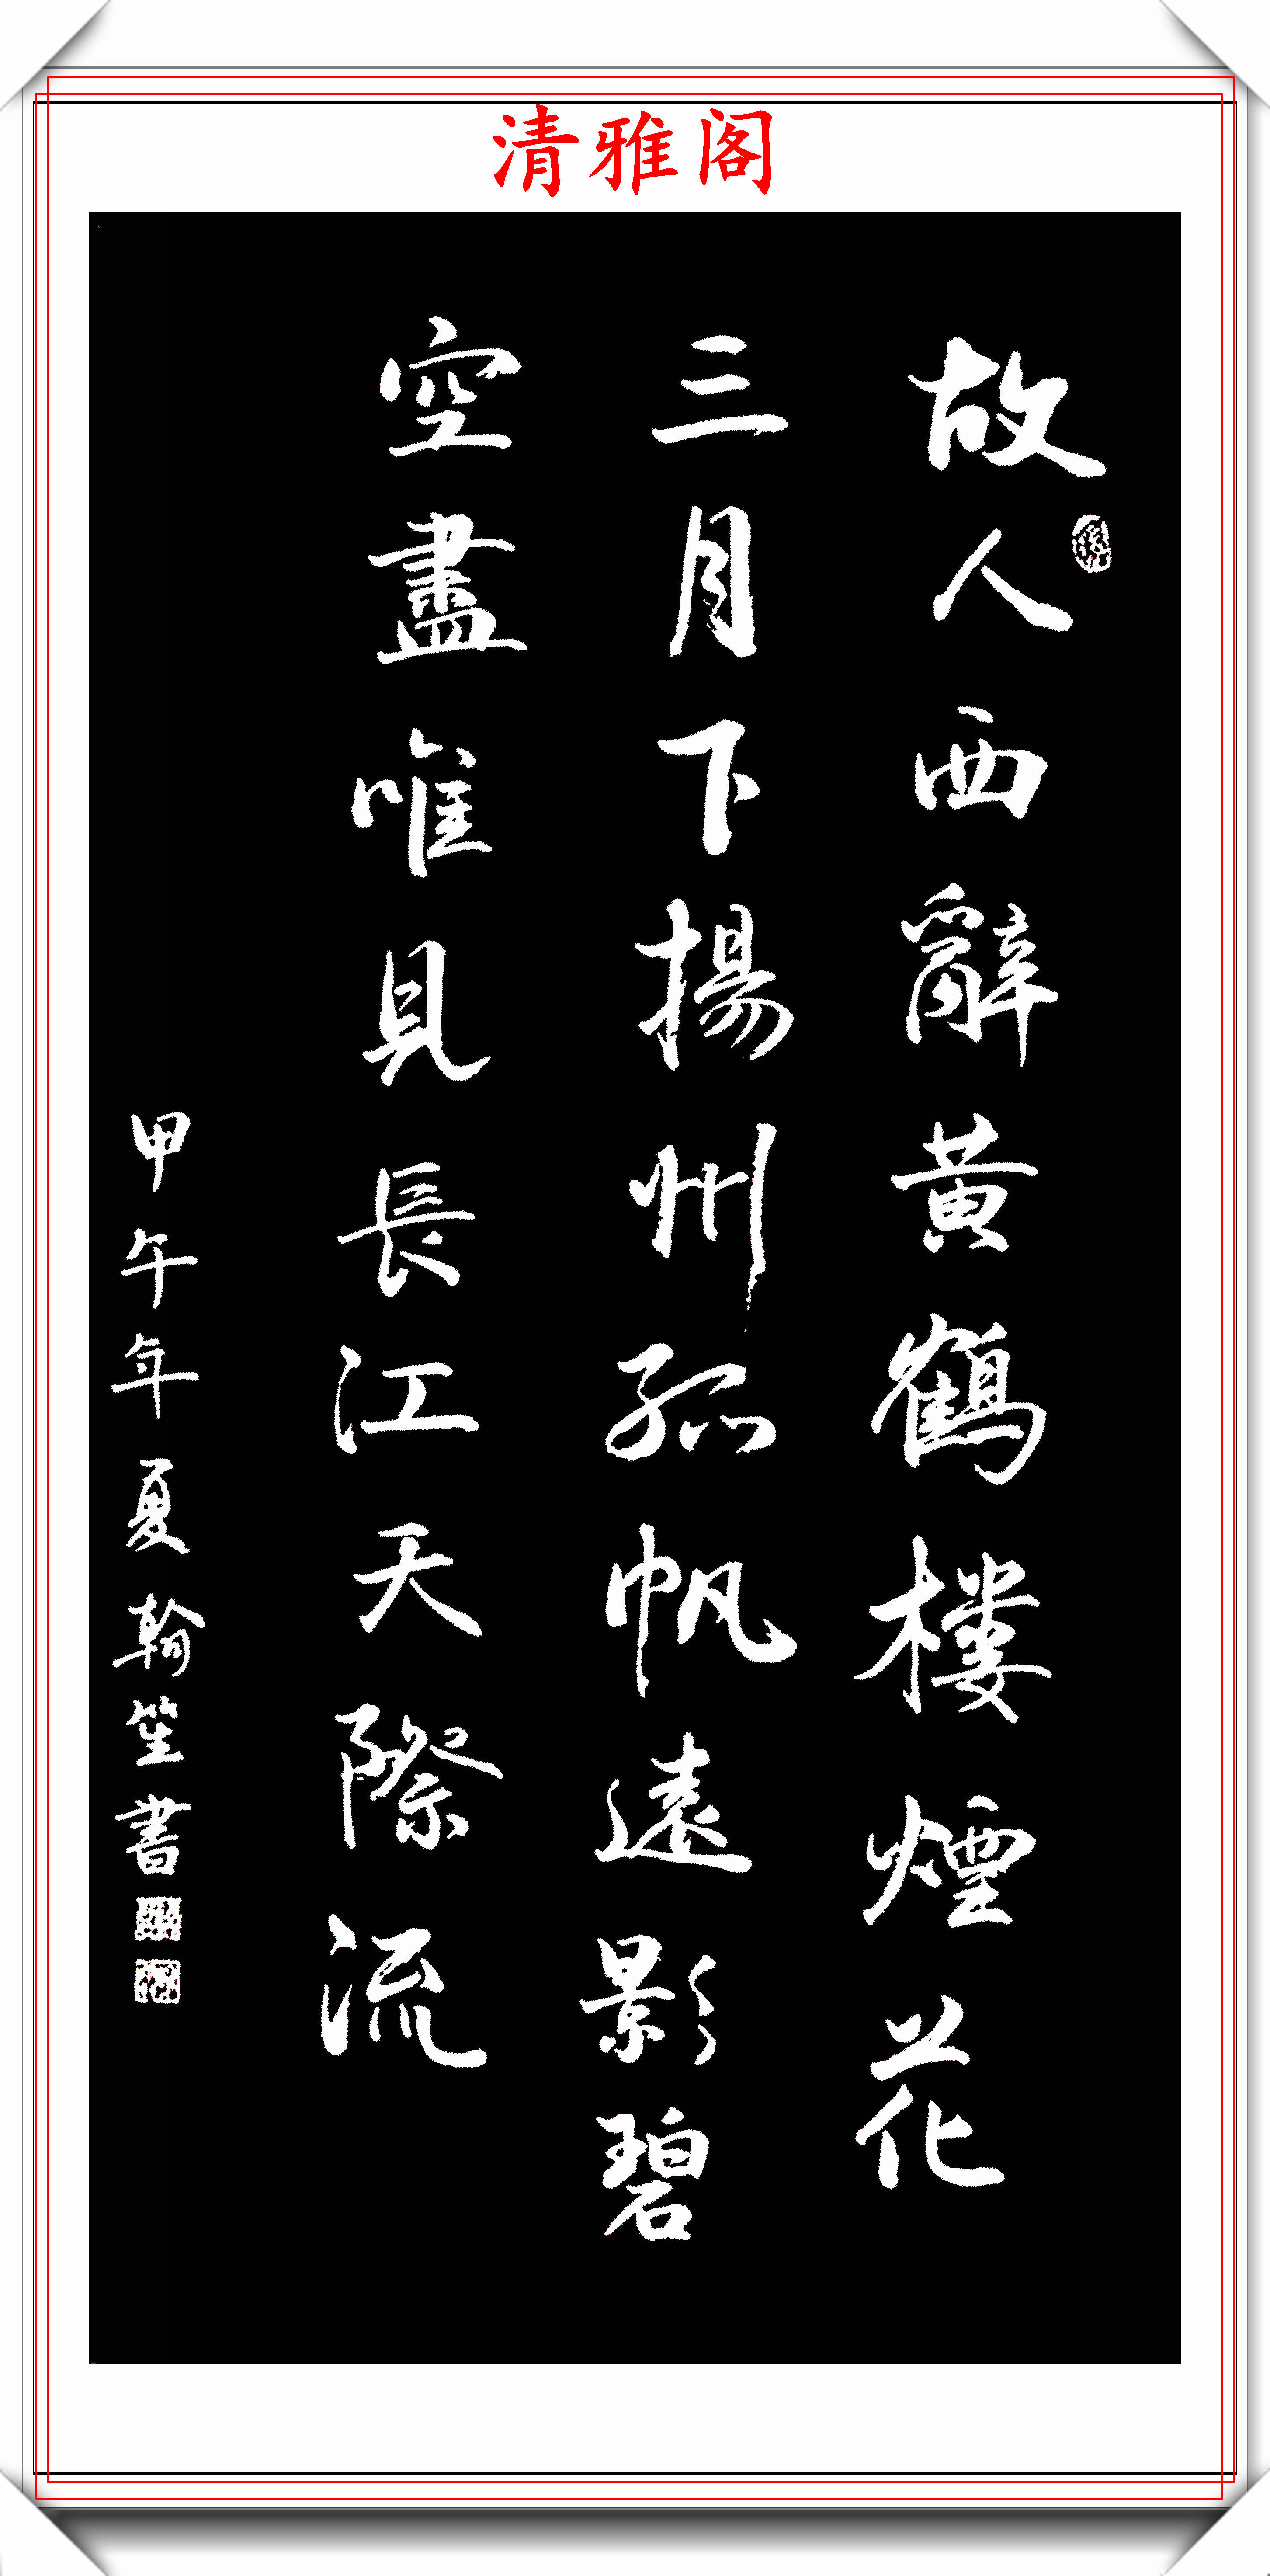 清雅阁
故人西辭黄鶴楼煙花
三月下揚州孤帆遠影碧
空盡唯見長江天際流
甲午年夏翰笙書